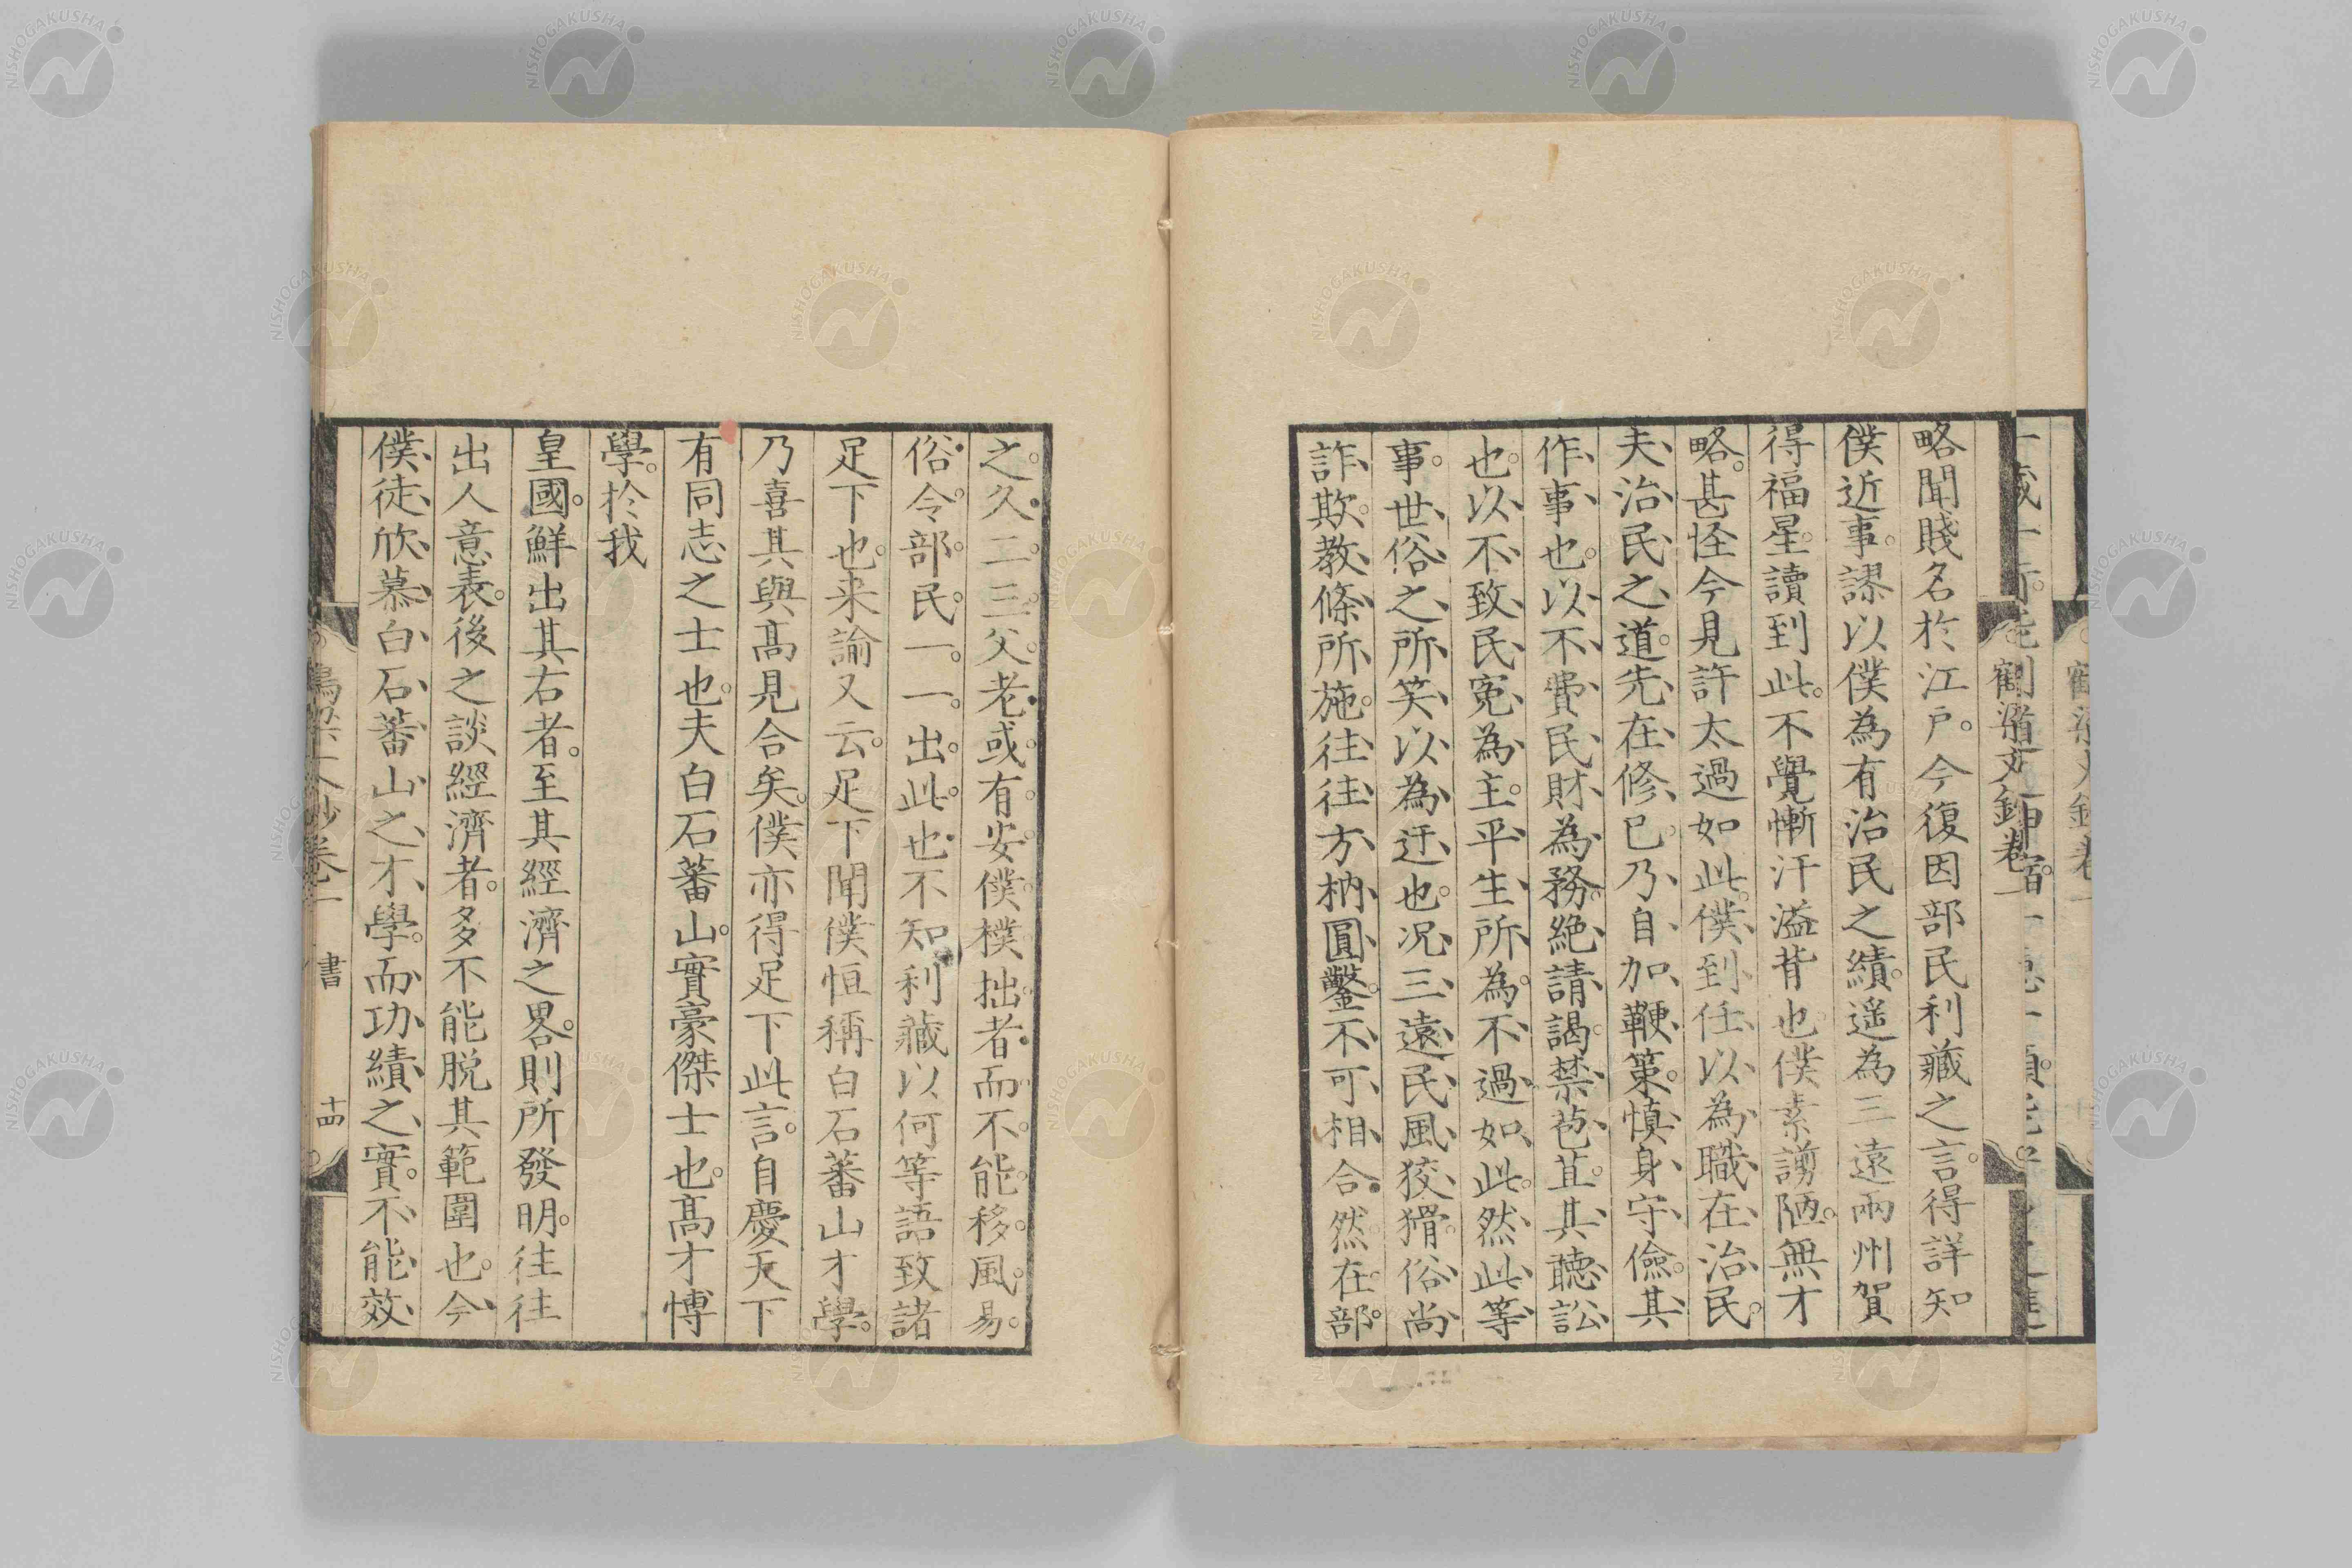 鶴梁文鈔卷一
略聞賤名於江戸。今復因部民利藏之言。得詳知
僕近事。謬以僕為有治民之績。遥為三遠兩州賀
得福星。讀到此。不覺慚汗溢背也。僕素謭陋。無才
略。甚怪今見許太過如此。僕到任以為職在治民。
夫治民之道。先在修已。乃自加鞭策。慎身守儉。其
作事也。以不費民財為務。絶請謁。禁苞苴。其聽訟
也。以不致民寃為主。平生所為。不過如此。然此等
事。世俗之所笑以為迂也。况三遠民風狡猾。俗尚
詐欺。教條所施。往往方枘圓鑿。不可相合。然在部
之久。二三父老。或有安僕樸拙者。而不能移風易
俗。令部民一一出此也。不知利藏以何等語致諸
足下也。来諭又云。足下聞僕恒稱白石蕃山才學。
乃喜其與髙見合矣。僕亦得足下此言。自慶天下
有同志之士也。夫白石蕃山。實豪傑士也。髙才博
學。於我
皇國。鮮出其右者。至其經濟之畧。則所發明。往往
出人意表。後之談經濟者。多不能脱其範圍也。今
僕徒欣慕白石蕃山之才學。而功績之實。不能效
書
十四
NISHOGAKUSHA